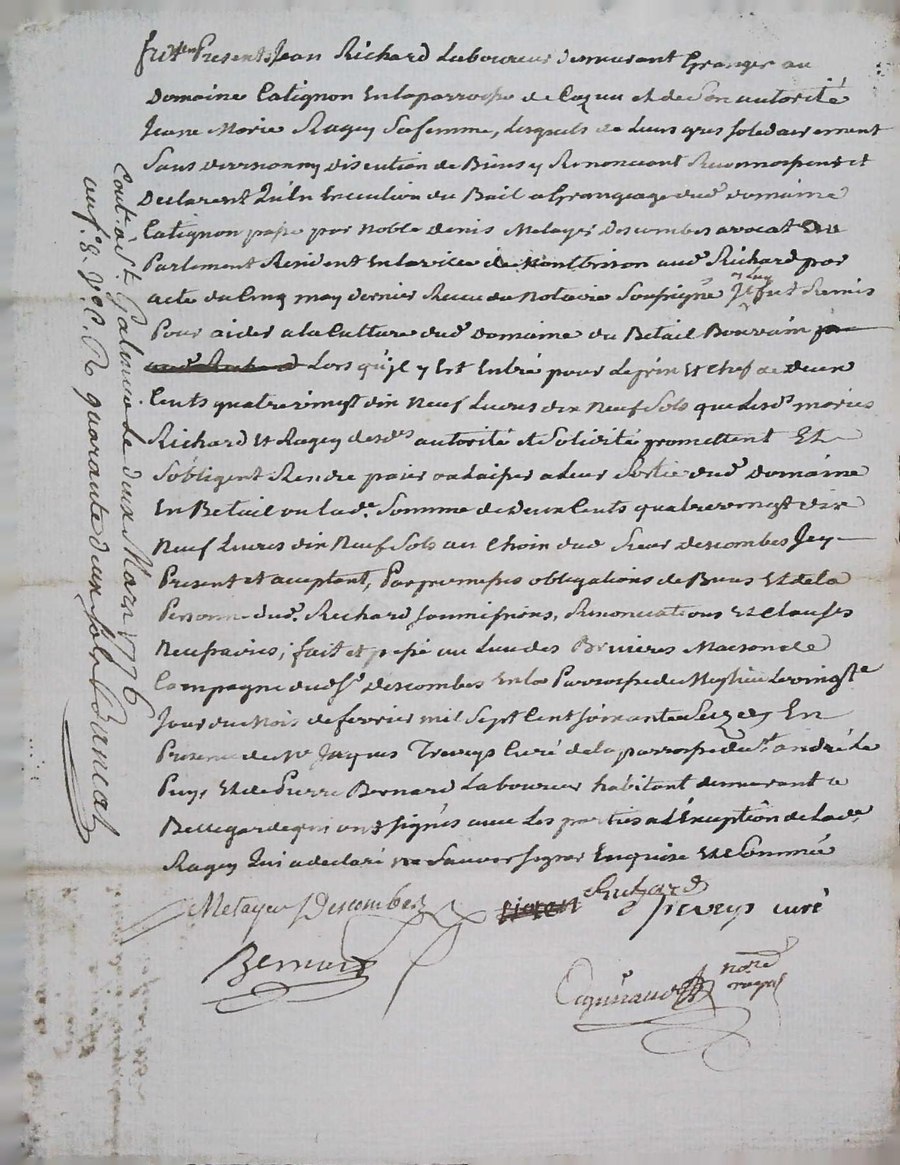 Presents Jean Richard Laboureur demeurant Granger au
Domaine Catignon En la parroisse de et de Son autorité
Jeane Marie Ragey Sa femme, lesquels de leurs grés solidairement
Sans division ny discution de Biens y Renonceant Reconnoissent et
Declarent Qu'En Execution du Bail a Grangeage dud. Domaine
Catignon passé par Noble Denis Metayer Descombes avocat En
Parlement Resident En la ville de Montbrison aud. Richard par
acte du Cinq may dernier Recu du Notaire Soussigné Il fut Remis
y luy
Pour aider a la Culture dud. Domaine du Betail Bouvain
aud. Richard Lorsqu'jl y Est Entré pour Le prix Et Chef de deux
Cents quatrevingt dix Neuf Livres dix Neuf Sols que Lesds. mariés
Richard Et Ragey desds. autorité et Solidité promettent Et
S'obligent Rendre paier ou laisser a Leur Sortie dud. Domaine
En Betail ou lade. Somme de Deux Cents quatrevingt dix
Neuf Livres dix Neuf Sols au Choix dud. Sieur Descombes Jcy
Present et acceptant, Par promesses obligations de Biens Et de la
Personne dud. Richard soumissions, Renonciations Et Clauses
Necessaires; fait et passé au Lieu des Bruieres Maison de
Campagne dud. Sr. Descombes En la Parroisse de Le vingte.
Jour du Mois de fevrier mil Sept Cent soixante Seize Et En
Presence de Me. Jacques Treveys Curé de la parroisse de St. andré Le
Puys Et de Pierre Bernard Laboureur habitant demeurant a
Bellegarde qui ont signés avec Les parties a l'Exception de lade.
Ragey Qui a declaré ne Sçavoir signer Enquise Et Sommée
Metayer Descombes Richard Treveys curé
Bernard
nore.
royal
Cont. à St. Galmier Le deux Mars 1776
quarante deux sols